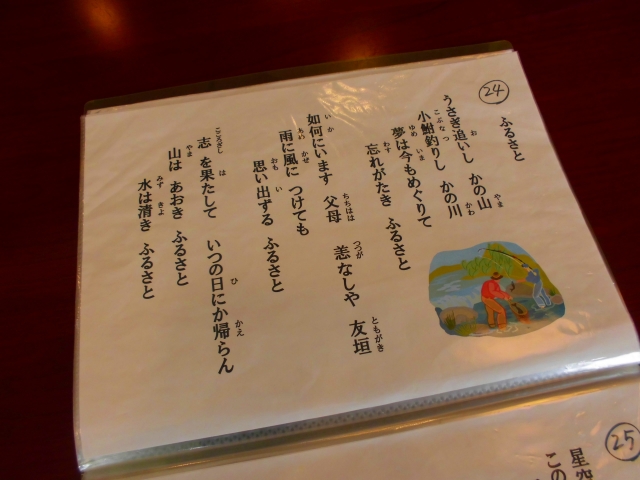 ㉔
ふるさと
うさぎ追いし かの山
小鮒釣りし かの川
夢は今もめぐりて
忘れがたき ふるさと
如何にいます 父母 恙なしや 友垣
雨に風に つけても
思い出ずる ふるさと
志を果たして いつの日にか帰らん
山は あおき ふるさと
水は清き ふるさと
㉕
星空
この